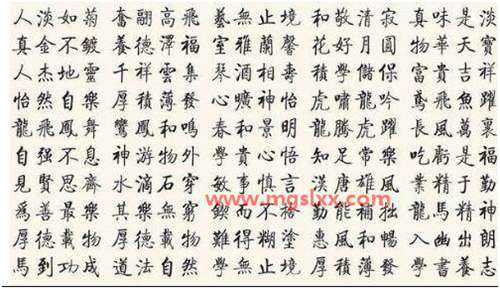 人淡如菊 奮翮高飛 藝無止境 和敬清寂 真味是淡
真金不鍍 養德澤福 室雅蘭馨 花好月圓 物華天寶
人杰地靈 千祥雲集 琴酒相壽 學儲 富貴吉祥
怡然自樂 厚積薄發 心曠神怡 虎嘯龍吟 鳶飛魚躍
龍飛鳳舞 鸞鳳和鳴 春和景明 龍騰虎躍 長風萬裏
自强不息 神游物外 學貴心悟 知足常樂 吃虧是福
見賢思齊 水滴石穿 敏事慎言 漢唐雄風 業精于勤
www.mgslxx.com
爲善最樂 其樂無窮 鍥而不捨 勤能補拙 龍馬精神
厚德載物 厚德載物 難得糊塗 惠風和暢 入幽出朗
馬到功成 道法自然 學無止境 厚積薄發 學書養志